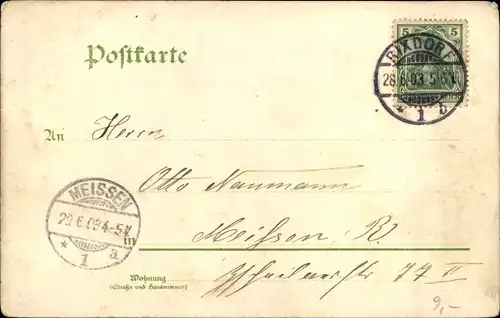 Postkarte
5 5
RIXDORF
28.6.03.5-6N.
* 1 b
An Herrn
Otto Naumann
MEISSEN
29.6.03.4-5N
* 1 a
in Meissen, R.
77 II
Wohnung
(Straße und Hausnummer)
9,-